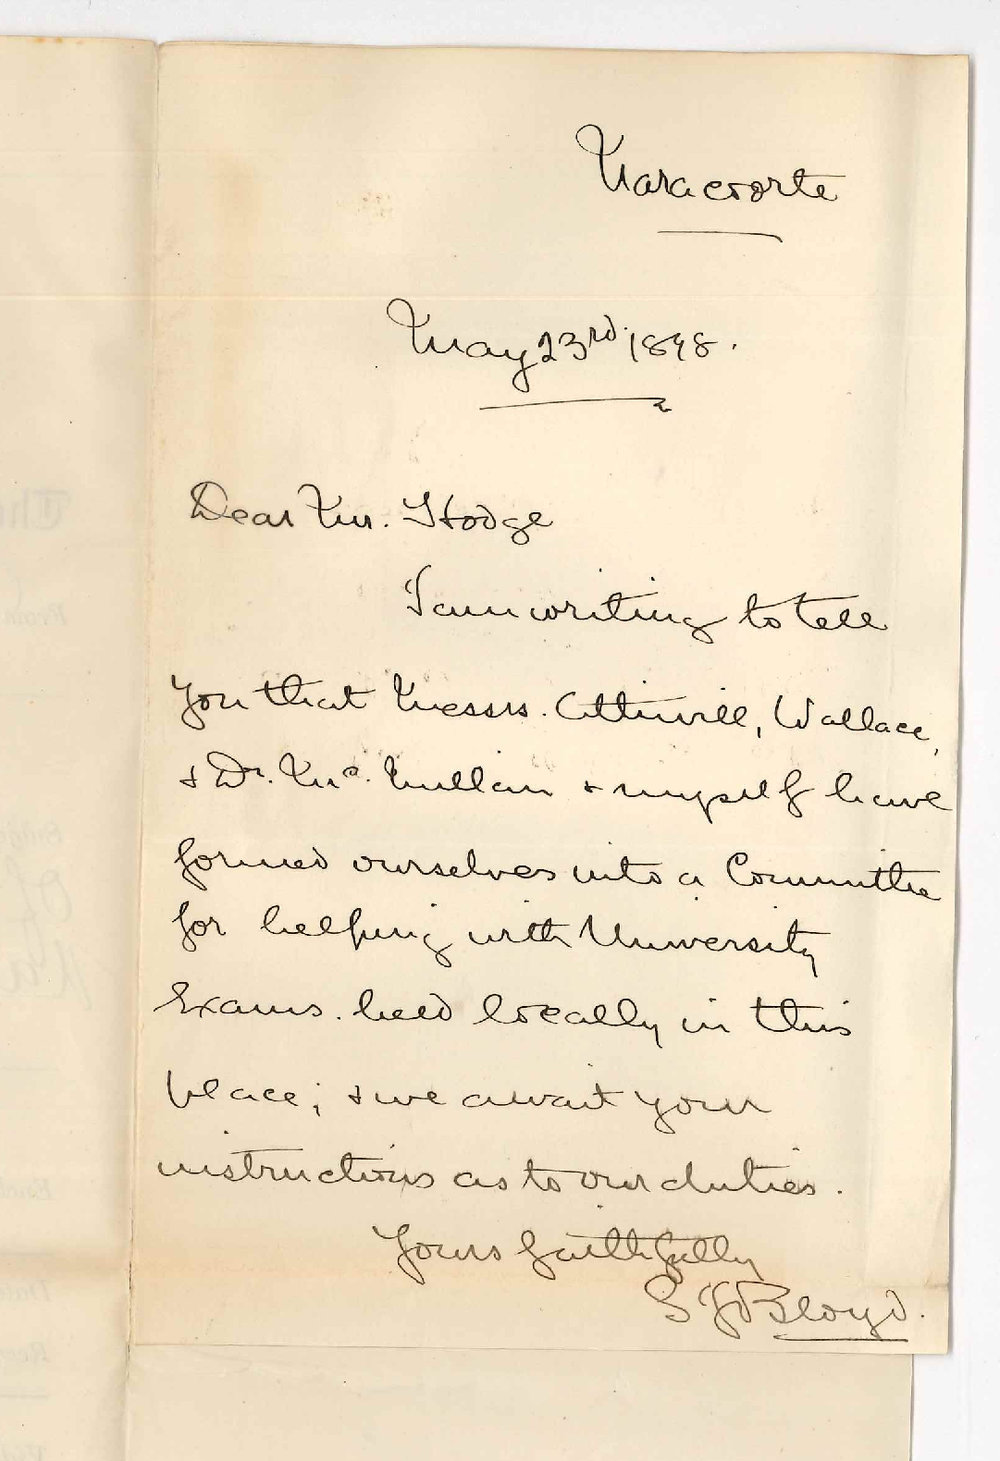 Naracoorte
May 23rd. 1898.
Dear Mr. Hodge
I am writing to tell
you that Messrs. Attiwill, Wallace,
& Dr. Mc. Mullan & myself have
formed ourselves into a Committee
for helping with University
Exams. held locally in this
place; & we await your
instructions as to our duties.
Yours faithfully